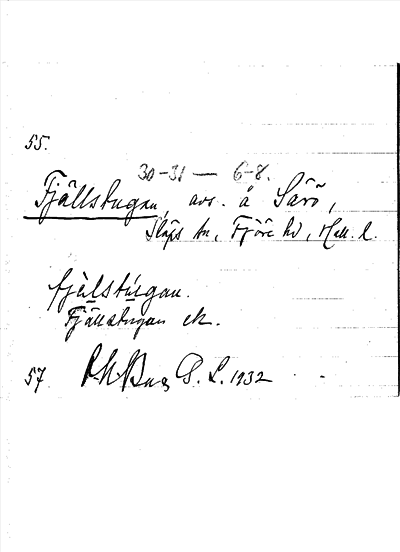 55.
30-31 — 6-8.
Fjällstugan, avs. å Särö,
Släps sn, Fjäre hd, Hall. l.
fjälstúgan.
Fjällstugan ek.
57 G. L. 1932